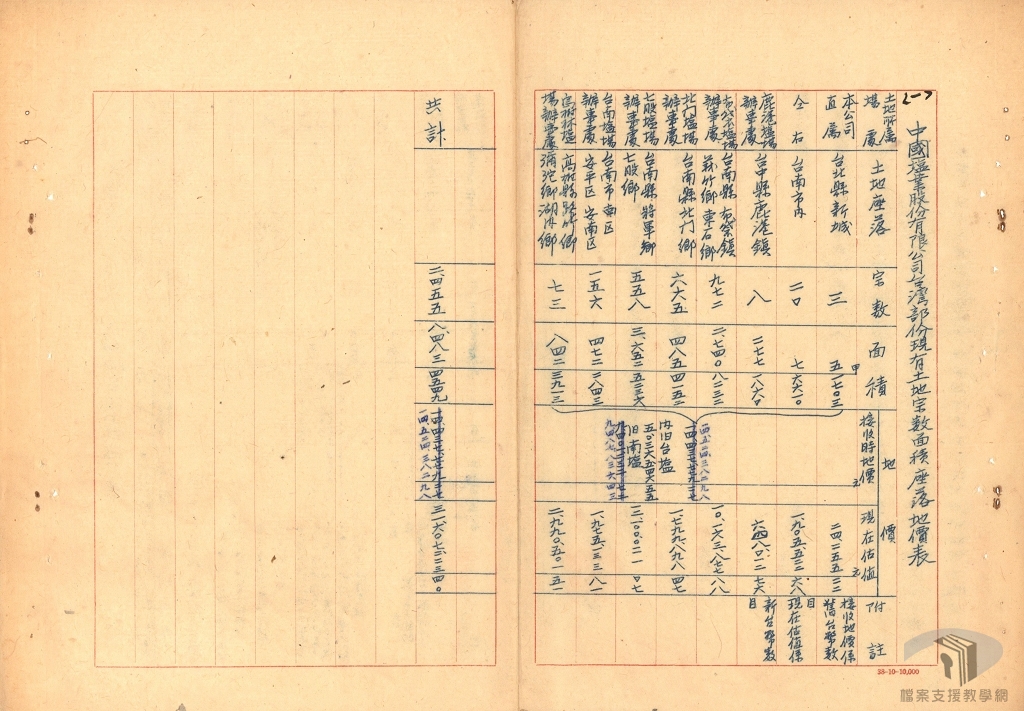 中國塩業股份有限公司台灣部份現有土地宗數面積座落地價表
土地所屬塲處 土地座落 宗數 面積 甲 地價 接收時地價 元 現在估值 元 附註
本公司直屬 台北縣新城 三 五一七〇三 二四一二五五二二 接收地價係舊台幣數目
仝右 台南市內 二〇 七六六一〇 一九〇五五三二六八 現在估值係新台幣數目
鹿港塩場辦事處 台中縣鹿港鎮 八 二七七一八六〇 六四八〇一二七六
布袋塩場辦事處 台南縣布袋鎮義竹鄉東石鄉 九七二 二、七四〇八二三二 一〇、一六三、八七七八八
北門塩場辦事處 台南縣北門鄉 六六五 四八五四一五二 一、七九九、八九八四七
七股塩場辦事處 台南縣將軍鄉七股鄉 五五八 三、六五二五二三六
台南塩場辦事處 台南市南區安平區安南區 一五六 四七二二八四三 一、九七五、一三三八一
塲辦事處 彌沱鄉湖內鄉 七三 八四二三九一三 二、九九〇、五〇一五一
內旧台塩
旧南塩
共計 二、四五五 八、四八三四五四九 三一、六〇七、二三四〇
38-10-10,000
檔案支援教學網